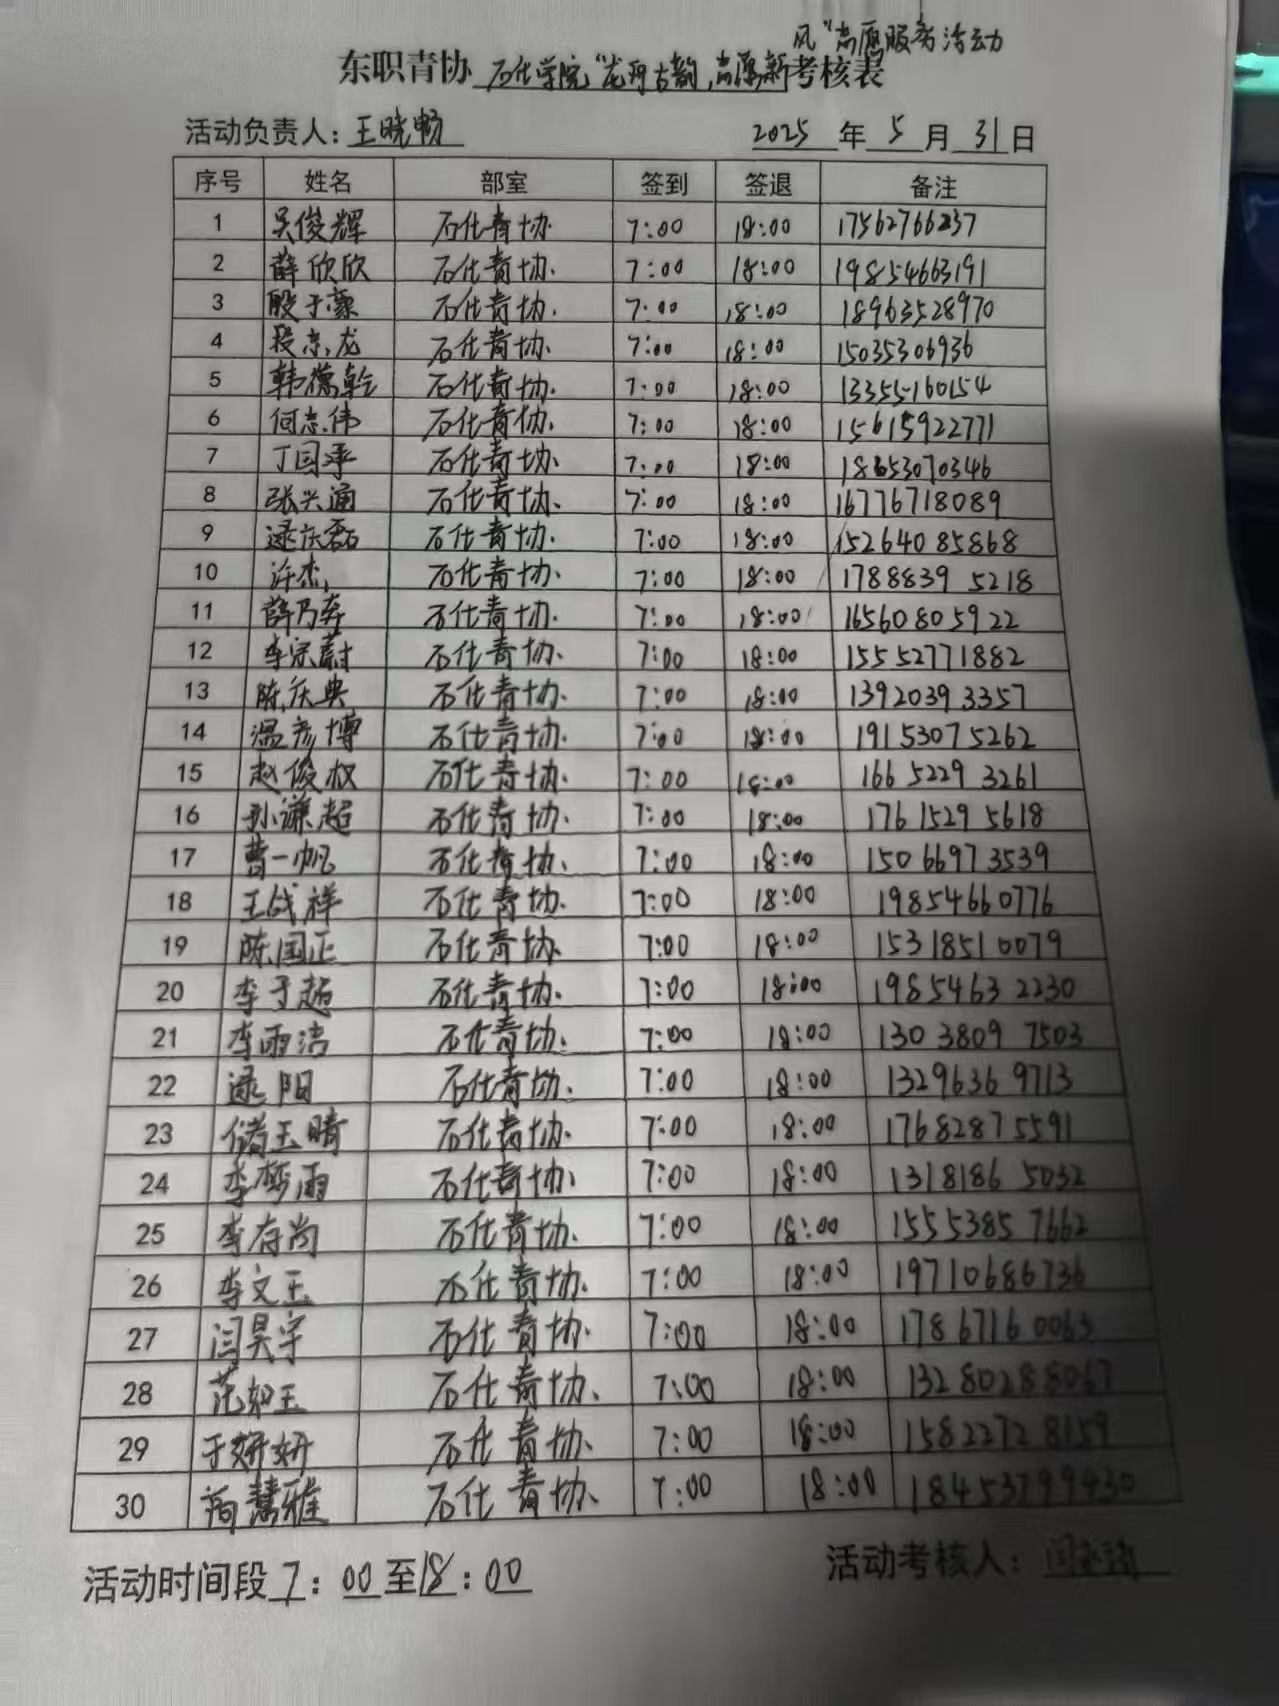 风”志愿服务活动
东职青协 石化学院“龙舟古韵,志愿新 考核表
活动负责人:王晓畅 2025 年 5 月 31 日
序号 姓名 部室 签到 签退 备注
1 吴俊辉 石化青协 7:00 18:00 17562766237
2 薛欣欣 石化青协 7:00 18:00 19854663191
3 殷于濠 石化青协 7:00 18:00 18963528970
4 段志龙 石化青协 7:00 18:00 15035306936
5 韩德乾 石化青协 7:00 18:00 13355160154
6 何志伟 石化青协 7:00 18:00 15615922771
7 丁国承 石化青协 7:00 18:00 18653070346
8 张兴通 石化青协 7:00 18:00 16776718089
9 逯庆磊 石化青协 7:00 18:00 15264085868
10 许杰 石化青协 7:00 18:00 1788839 5218
11 薛乃奔 石化青协 7:00 18:00 16560805922
12 李宗蔚 石化青协 7:00 18:00 15552771882
13 陈庆典 石化青协 7:00 18:00 1392039 3357
14 温彦博 石化青协 7:00 18:00 19153075262
15 赵俊权 石化青协 7:00 18:00 166 5229 3261
16 孙谦超 石化青协 7:00 18:00 176 1529 5618
17 曹一帆 石化青协 7:00 18:00 150 6697 3539
18 王战祥 石化青协 7:00 18:00 19854660776
19 陈国正 石化青协 7:00 18:00 15318510079
20 李于超 石化青协 7:00 18:00 1985463 2230
21 李雨洁 石化青协 7:00 18:00 130 3809 7503
22 逯阳 石化青协 7:00 18:00 1329636 9713
23 储玉晴 石化青协 7:00 18:00 17682875591
24 李梦雨 石化青协 7:00 18:00 1318186 5032
25 李存尚 石化青协 7:00 18:00 1555385 7662
26 李文玉 石化青协 7:00 18:00 19710686736
27 闫昊宇 石化青协 7:00 18:00 1786716 0063
28 范如玉 石化青协 7:00 18:00 13280288067
29 于妍妍 石化青协 7:00 18:00 1582272 8159
30 苟慧雅 石化青协 7:00 18:00 18453799430
活动时间段 7:00 至 18:00 活动考核人: